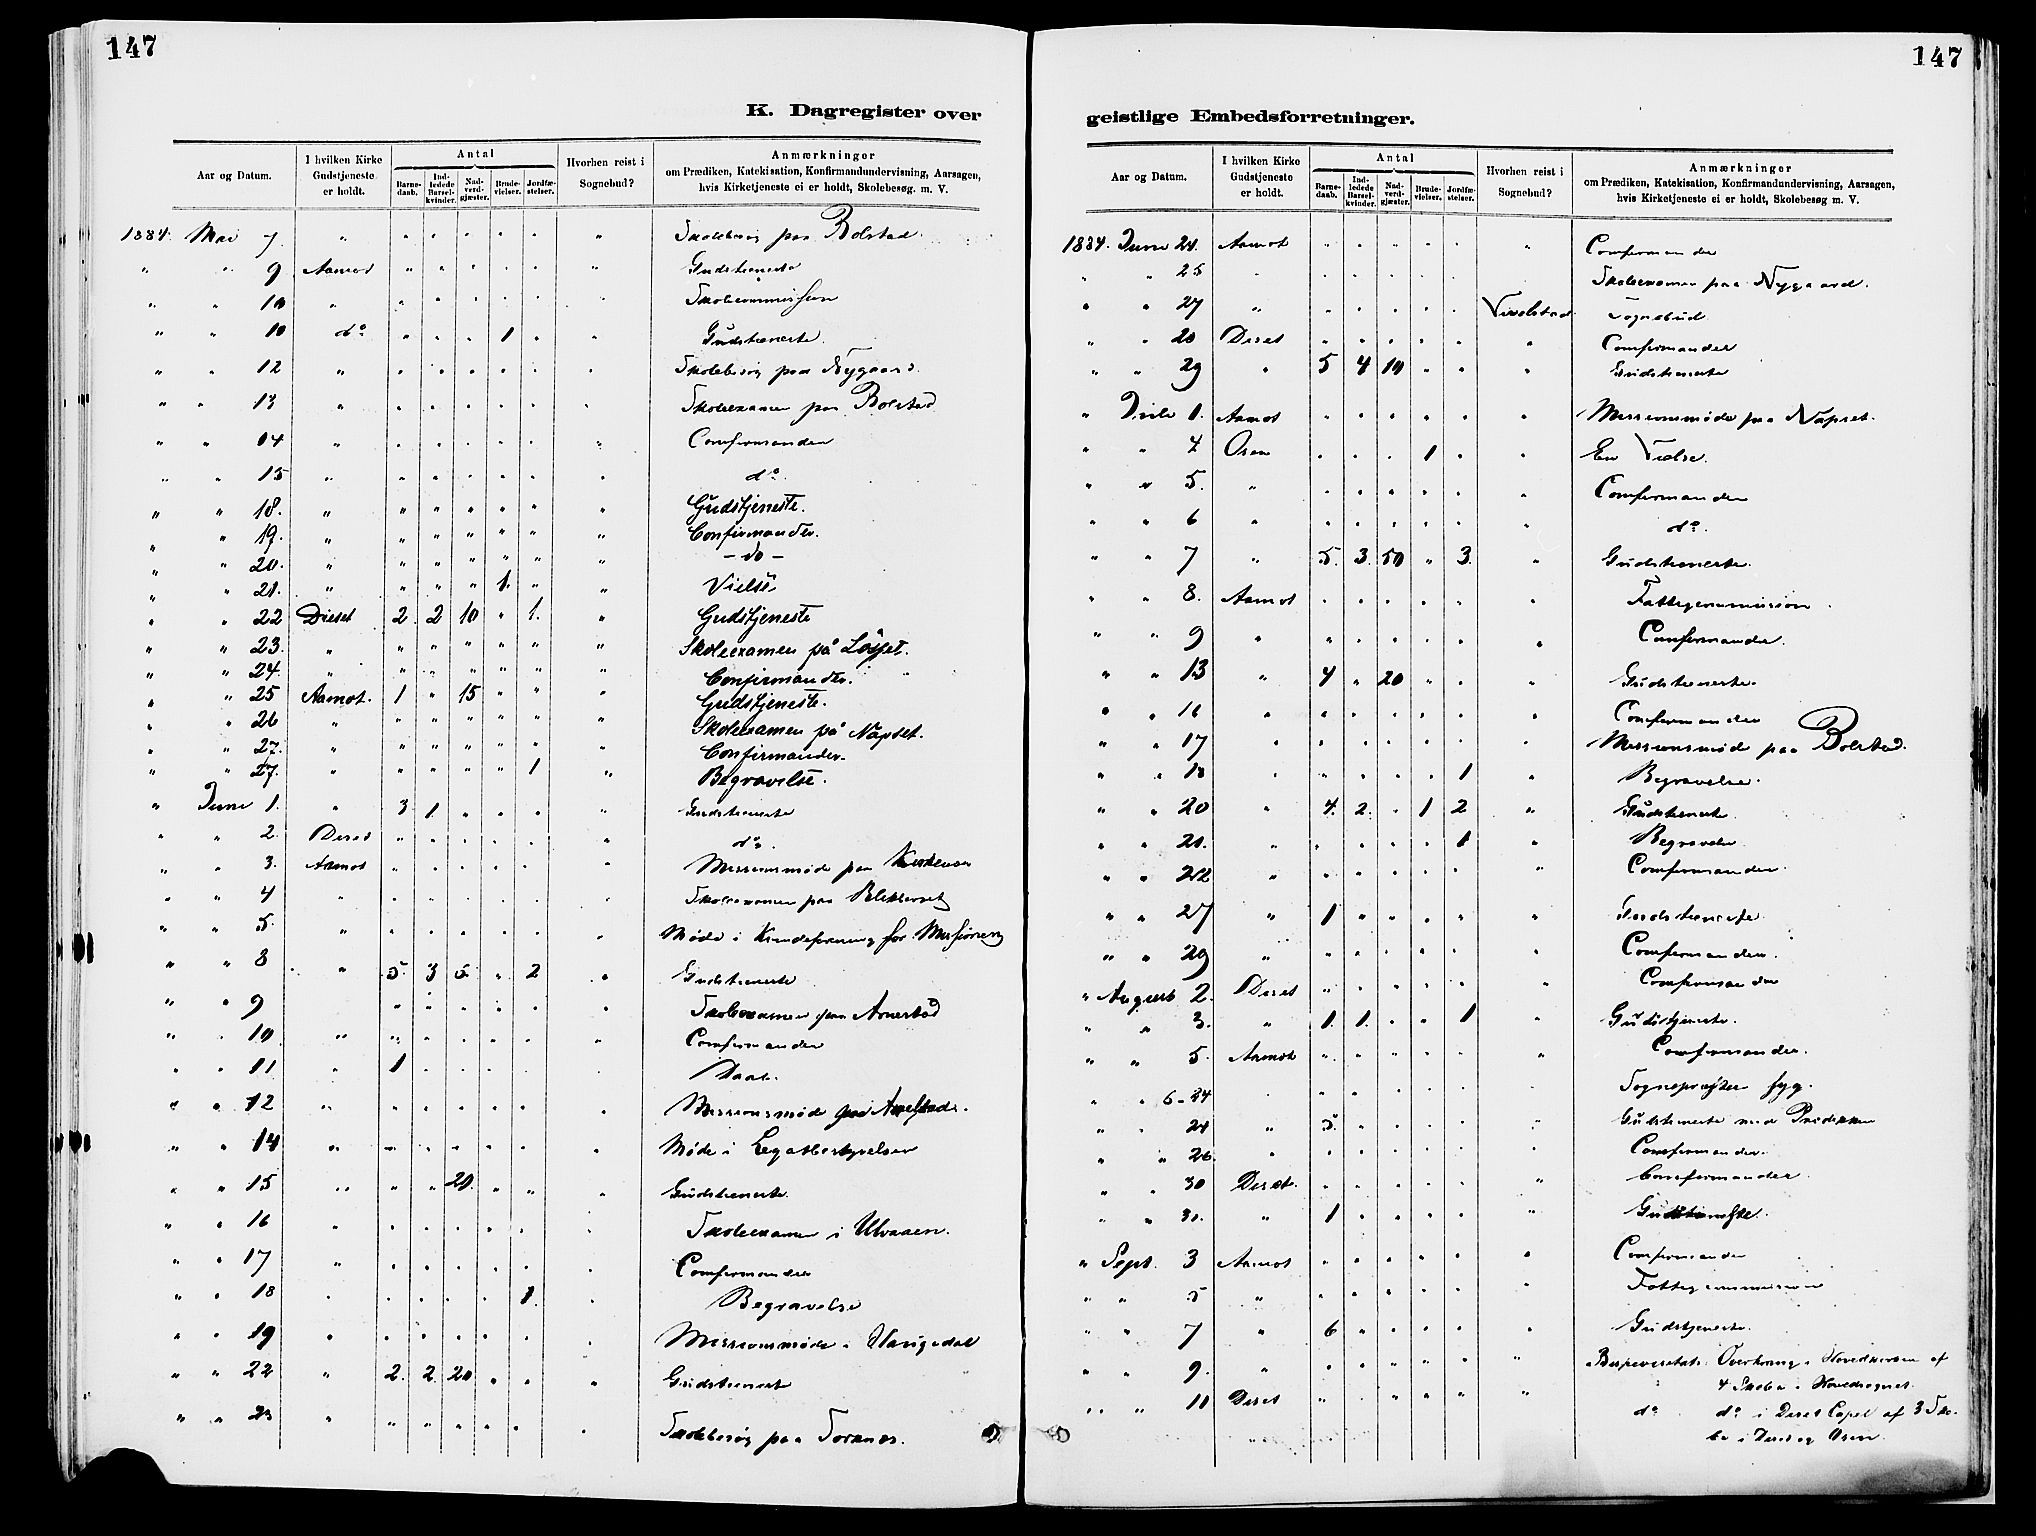 147
K. Dagregister over
Aar og Datum.
I hvilken Kirke Gudstjeneste er holdt.
Antal
Barne-daab.
Ind-ledede Barsel-kvinder.
Nad-verd-gjæster.
Brude-vielser.
Jordfæ-stelser.
Hvorhen reist i Sognebud?
Anmærkninger
om Prædiken, Katekisation, Konfirmandundervisning, Aarsagen,
hvis Kirketjeneste ei er holdt, Skolebesøg. m. V.
1884. Mai 7. " " " " " " " Skolebesøg paa Bolstad
" " 9 Aamot " " " " " " Gudstieneste
" " 10 " " " " " " " Skolecommission
" " 10 do " " " 1 " " Gudstieneste.
" " 12 " " " " " " " Skolebesøg paa Nygaard.
" " 13 " " " " " " " Skoleexamen paa Bolstad
" " 14 " " " " " " " Comfirmander
" " 15 " " " " " " " do.
" " 18. " " " " " " " Gudstjeneste.
" " 19. " " " " " " " Confirmander.
" " 20. " " " " " " " - do -
" " 21. " " " " 1. " " Vielse
" " 22 Dieset 2 2 10 " 1. " Gudstjeneste
" " 23. " " " " " " " Skoleexamen på Løsset.
" " 24. " " " " " " " Confirmander.
" " 25 Aamot. 1 " 15 " " " Gudstjeneste.
" " 26 " " " " " " " Skoleexamen på Nåpset.
" " 27. " " " " " " " Confirmander.
" " 27. " " " " " 1 " Begravelse.
" Juni 1. " 3 1. " " " " Gudstieneste
" " 2. Deset " " " " " " do.
" " 3. Aamot " " " " " " Missionsmøde paa
" " 4 " " " " " " " Skoleexamen paa
" " 5. " " " " " " " Møde i Kvindeforening for Missionen
" " 8 " 5. 3 5. " 2 " Gudstieneste
" " 9 " " " " " " Skoleexamen paa Arnestad
" " 10 " " " " " " " Comfirmander
" " 11 " 1 " " " " " Daab.
" " 12 " " " " " " " Missionsmøde paa
" " 14 " " " " " " " Møde i Legatbestyrelsen
" " 15 " " " 20. " " " Gudstieneste.
" " 16 " " " " " " " Skoleexamen i Ulvaaen.
" " 17 " " " " " " " Comfirmander
" " 18 " " " " " 1. " Begravelse
" " 19 " " " " " " " Missionsmøde i Haugedal
" " 22 " 2. 2. 20 " " " Gudstieneste
" " 23 " " " " " " " Skolebesøg paa Sorknes.
147
geistlige Embedsforretninger.
Aar og Datum.
I hvilken Kirke Gudstjeneste er holdt.
Antal
Barne-daab.
Ind-ledede Barsel-kvinder.
Nad-verd-gjæster.
Brude-vielser.
Jordfæ-stelser.
Hvorhen reist i Sognebud?
Anmærkninger
om Prædiken, Katekisation, Konfirmandundervisning, Aarsagen,
hvis Kirketjeneste ei er holdt, Skolebesøg m. V.
1884. Juni 24. Aamot " " " " " " Comfirmander
" " 25 " " " " " " Skoleexamen paa Nygaard.
" " 27 " " " " " " Sognebud
" " 28 Deset " " " " " " Comfirmander
" " 29 " 5 4 10 " " " Gudstieneste
" Juli 1. Aamot " " " " " " Missionsmøde paa Nåpset.
" " 4 Osen " " " 1 " " En Vielse.
" " 5. " " " " " " " Comfirmander
" " 6 " " " " " " " do.
" " 7 " 5. 3. 50 " 3. " Gudstieneste.
" " 8. Aamot " " " " " Fattigcommission.
" " 9 " " " " " " " Comfirmander.
" " 13 " 4 " 20 " " " Gudstieneste.
" " 16 " " " " " " " Comfirmander
" " 17 " " " " " " " Missionsmøde paa Bolstad.
" " 18 " " " " " 1 " Begravelse.
" " 20 " 4. 2. " 1 2 " Gudstieneste
" " 21. " " " " " 1 " Begravelse
" " 22 " " " " " " " Comfirmander.
" " 27 " 1 " " " " " Gudstieneste
" " 29 " " " " " " Comfirmander.
" August 2. Deset " " " " " " Comfirmander
" " 3. " 1. 1. " " 1 " Gudstjeneste.
" " 5. Aamot " " " " " " Comfirmander.
" " 6-24 " " " " " Sognepræsten syg.
" " 24 " 5. " " " " " Gudstieneste med Prædiken
" " 26. " " " " " " Comfirmander.
" " 30 Deset. " " " " " " Comfirmander
" " 31. " 1 " " " " " Gudstieneste.
" Sept. 3 Aamot " " " " " " Comfirmander
" " 5 " " " " " " " Fattigcommission
" " 7 " 6 " " " " " Gudstjeneste.
" " 9. " " " " " " " Bispevisitats: Overhøring i Hovedkirken af
4 Skoler i Hovedsognet.
" " 11 Deset " " " " " " do do i Deset Capel af 3 Sko-
le i Deset og Osen